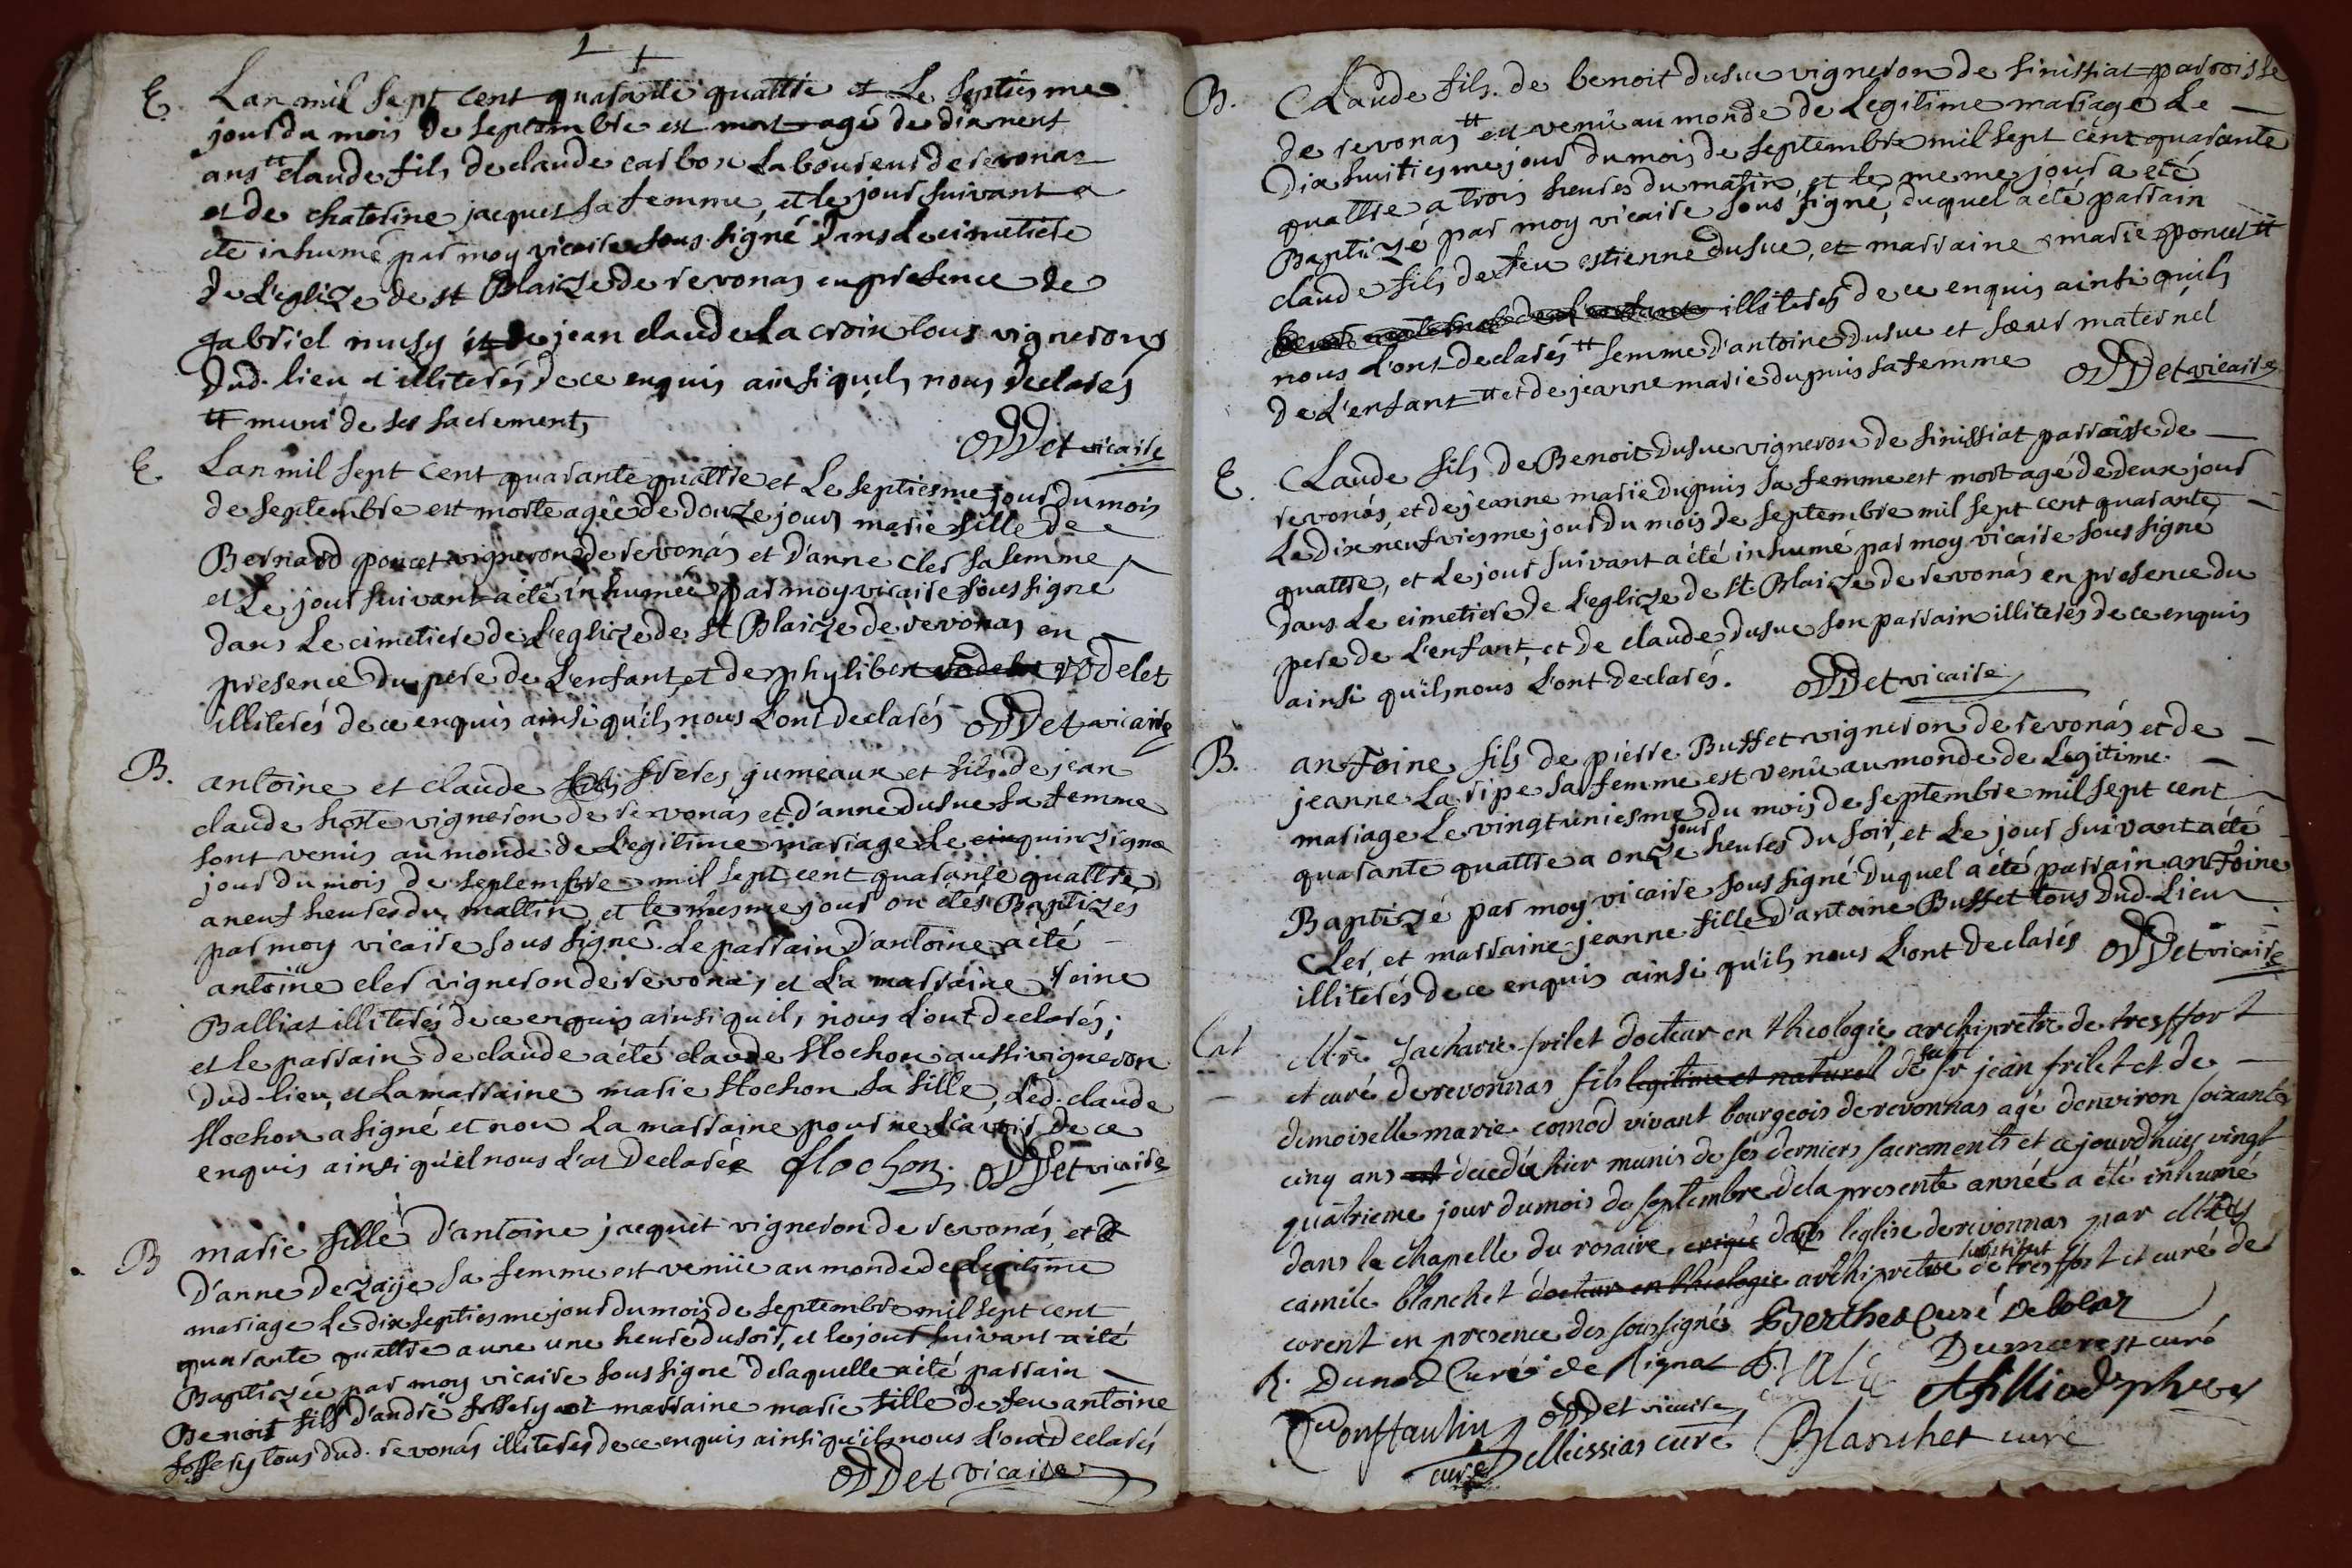 E. Lan mil sept cent quarante quattre et Le septiesme
jour du mois de septembre est mort agé de dixneuf
ans # claude fils de claude carbon Laboureur de revonas
et de chaterine jacquet sa femme, et le jour suivant a
été inhumé par moy vicaire sous signé dans Le cimetiere
de L'eglize de st Blaize de revonas en presence de
gabriel musy et de jean claude La croix tous vignerons
dud. lieu illiterés de ce enquis ainsi quils nous declarés
# muni de ses sacrements
oDDet vicaire
E. Lan mil sept cent quarante quattre et Le septiesme jour du mois
de septembre est morte agée de douze jours marie fille de
Bernard poncet vigneron de revonás et d'anne cler sa femme
et Le jour suivant a été inhumée par moy vicaire sous signé
dans Le cimetiere de L'eglize de st Blaize de revonas en
presence du pere de L'enfant, et de phylibert rodelet
illiterés de ce enquis ainsi qu'ils nous L'ont declarés oDDet vicaire
B. antoine et claude freres jumeaux et fils de jean
claude hoste vigneron de revonás et d'anne dusuc sa femme
sont venus au monde de Legitime mariage Le quinzigme
jour du mois de septembre mil sept cent quarante quattre
a neuf heures du mattin, et le mesme jour on étés Baptizés
par moy vicaire sous signé. Le parrain d'antoine a été
antoine cler vigneron de revonás, et La marraine
Balliat illiterés de ce enquis ainsi quils nous L'ont declarés;
et le parrain de claude a été claude flochon aussi vigneron
dud-lieu, et La marraine marie flochon sa fille, Led. claude
flochon a signé et non La marraine pour ne scavoir de ce
enquis ainsi qu'el nous L'at declarée flochon. oDDet vicaire
B marie fille d'antoine jacquet vigneron de revonás, et
d'anne dezaije sa femme est venüe au monde de Legitime
mariage Le dix septiesme jour du mois de septembre mil sept cent
quarante quattre a une une heure du soir, et le jour suivant a été
Baptizée par moy vicaire sous signé de laquelle a été parrain
Benoit fils d'andré et marraine marie fille de feu antoine
tous dud. revonás illiterés de ce enquis ainsi qu'ils nous L'ont declarés
oDDet vicaire
B. CLaude fils de benoit dusuc vigneron de sinissiat parroisse
de revonas # est venü au monde de Legitime mariage Le
dix huitiesme jour du mois de septembre mil sept cent quarante
quattre a trois heures du matin, et le meme jour a été
Baptizé par moy vicaire sous signé, duquel a été parrain
claude fils de feu estienne dusuc, et marraine marie poncet #
illiterés de ce enquis ainsi quils
nous L'ont declarés # femme d'antoine dusuc et sœur maternel
de L'enfant # et de jeanne marie dupuis sa femme oDDet vicaire
E. CLaude fils de Benoit dusuc vigneron de sinissiat parroisse de
revonás, et de jeanne marie dupuis sa femme est mort agé de deux jour
Le dix neufviesme jour du mois de septembre mil sept cent quarante
quattre, et Le jour suivant a été inhumé par moy vicaire sous signé
dans Le cimetiere de L'eglize de st. Blaize de revonás en presence du
pere de L'enfant, et de claude dusuc son parrain illiterés de ce enquis
ainsi qu'ils nous L'ont declarés. oDDet vicaire
B. antoine fils de pierre Buffet vigneron de revonás et de
jeanne La ripe sa femme est venü au monde de Legitime
mariage Le vingt uniesme jour du mois de septembre mil sept cent
quarante quattre a onze heures du soir, et Le jour suivant a été
Baptizé par moy vicaire sous signé duquel a été parrain antoine
Cler, et marraine jeanne fille d'antoine Buffet tous dud-Lieu
illiterés de ce enquis ainsi qu'ils nous L'ont declarés oDDet vicaire
Ent Mre Zacharie frilet docteur en theologie archiprêtre de tresffort
et curé de revonnas fils legitime et naturel de feu sr jean frilet et de
demoiselle marie comod vivant bourgeois de revonnas agé d'environ soixante
cinq ans est décedé hier munis de ses derniers sacrements et ce jourdhuy vingt
quatrieme jour du mois de septembre de la presente année a été inhumé
dans la chapelle du rosaire, erigée dans l'eglise de revonnas par Mre
camile blanchet docteur en theologie archipretre substitut de tresffort et curé de
corent en presence des soussignés Berthet Curé de bolar
R. Dunod Curé de Rignat Dumarest curé
oDDet vicaire
curé Messias curé Blanchet curé